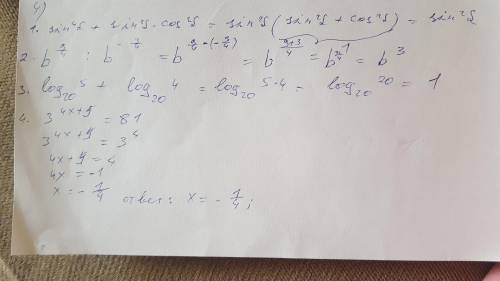 4)
1. sin⁴α + sin²α · cos²α = sin²α (sin²α + cos²α) = sin²α
1
2. b^(9/4) : b^(-3/4) = b^(9/4 - (-3/4)) = b^((9+3)/4) = = b³
3. log₂₀ 5 + log₂₀ 4 = log₂₀ 5·4 = log₂₀ 20 = 1
4. 3^(4x+5) = 81
3^(4x+5) = 3⁴
4x+5 = 4
4x = -1
x = - 1/4 ответ: x = - 1/4 ;